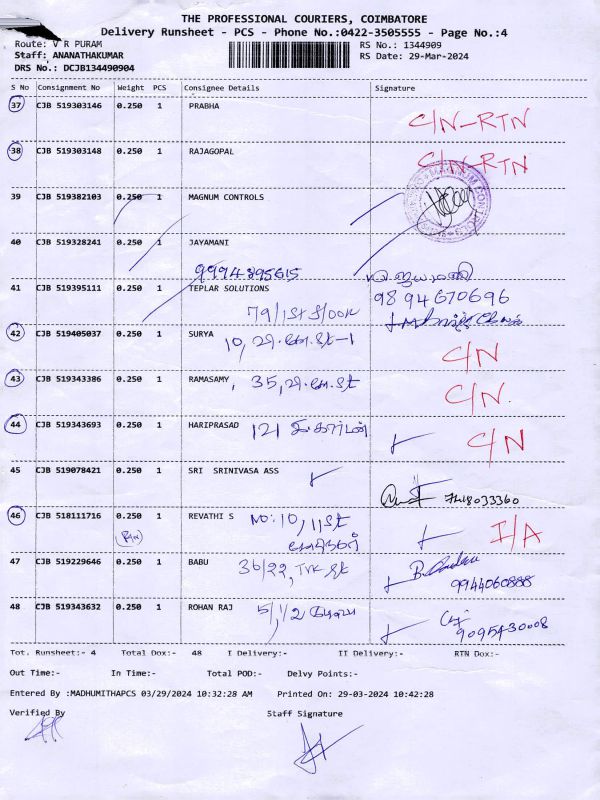 THE PROFESSIONAL COURIERS, COIMBATORE
Delivery Runsheet - PCS - Phone No.:0422-3505555 - Page No.:4
Route: V R PURAM
RS No.: 1344909
Staff: ANANATHAKUMAR
RS Date: 29-Mar-2024
DRS No.: DCJB134490904
S No Consignment No Weight PCS Consignee Details Signature
37 CJB 519303146 0.250 1 PRABHA C/N-RTN
38 CJB 519303148 0.250 1 RAJAGOPAL C/N-RTN
39 CJB 519382103 0.250 1 MAGNUM CONTROLS
40 CJB 519328241 0.250 1 JAYAMANI
9994395615
41 CJB 519395111 0.250 1 TEPLAR SOLUTIONS 9894670696
79/1st floor
42 CJB 519405037 0.250 1 SURYA C/N
43 CJB 519343386 0.250 1 RAMASAMY, 35, C/N.
44 CJB 519343693 0.250 1 HARIPRASAD 121 C/N
45 CJB 519078421 0.250 1 SRI SRINIVASA ASS
46 CJB 518111716 0.250 1 REVATHI S No: 10, 11st I/A
47 CJB 519229646 0.250 1 BABU 36/22, TVK st
9944060888
48 CJB 519343632 0.250 1 ROHAN RAJ 5/1/2
9095430008
Tot. Runsheet:- 4 Total Dox:- 48 I Delivery:- II Delivery:- RTN Dox:-
Out Time:- In Time:- Total POD:- Delvy Points:-
Entered By :MADHUMITHAPCS 03/29/2024 10:32:28 AM Printed On: 29-03-2024 10:42:28
Verified By Staff Signature